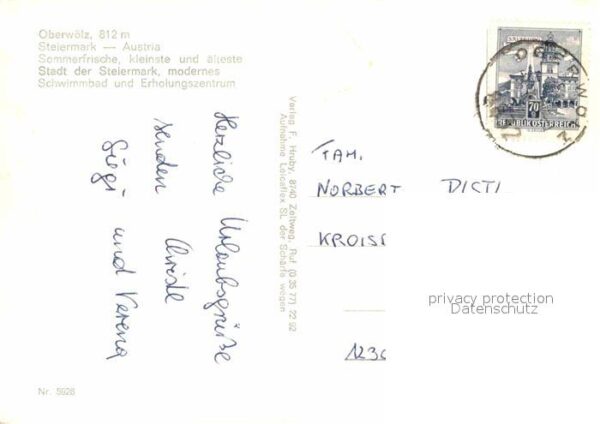 Oberwölz, 812 m
Steiermark — Austria
Sommerfrische, kleinste und älteste
Stadt der Steiermark, modernes
Schwimmbad und Erholungszentrum
Herzliche Urlaubsgrüße
senden
Christl
Gügi und Verena
Verlag F. Hruby, 8740 Zeltweg, Ruf (0 35 77) 22 92
Aufnahme Leicaflex SL der Schärfe wegen
FAM.
NORBERT DICTI
KROISE
1236
privacy protection
Datenschutz
70
REPUBLIK ÖSTERREICH
OBERWÖLZ
Nr. 5928